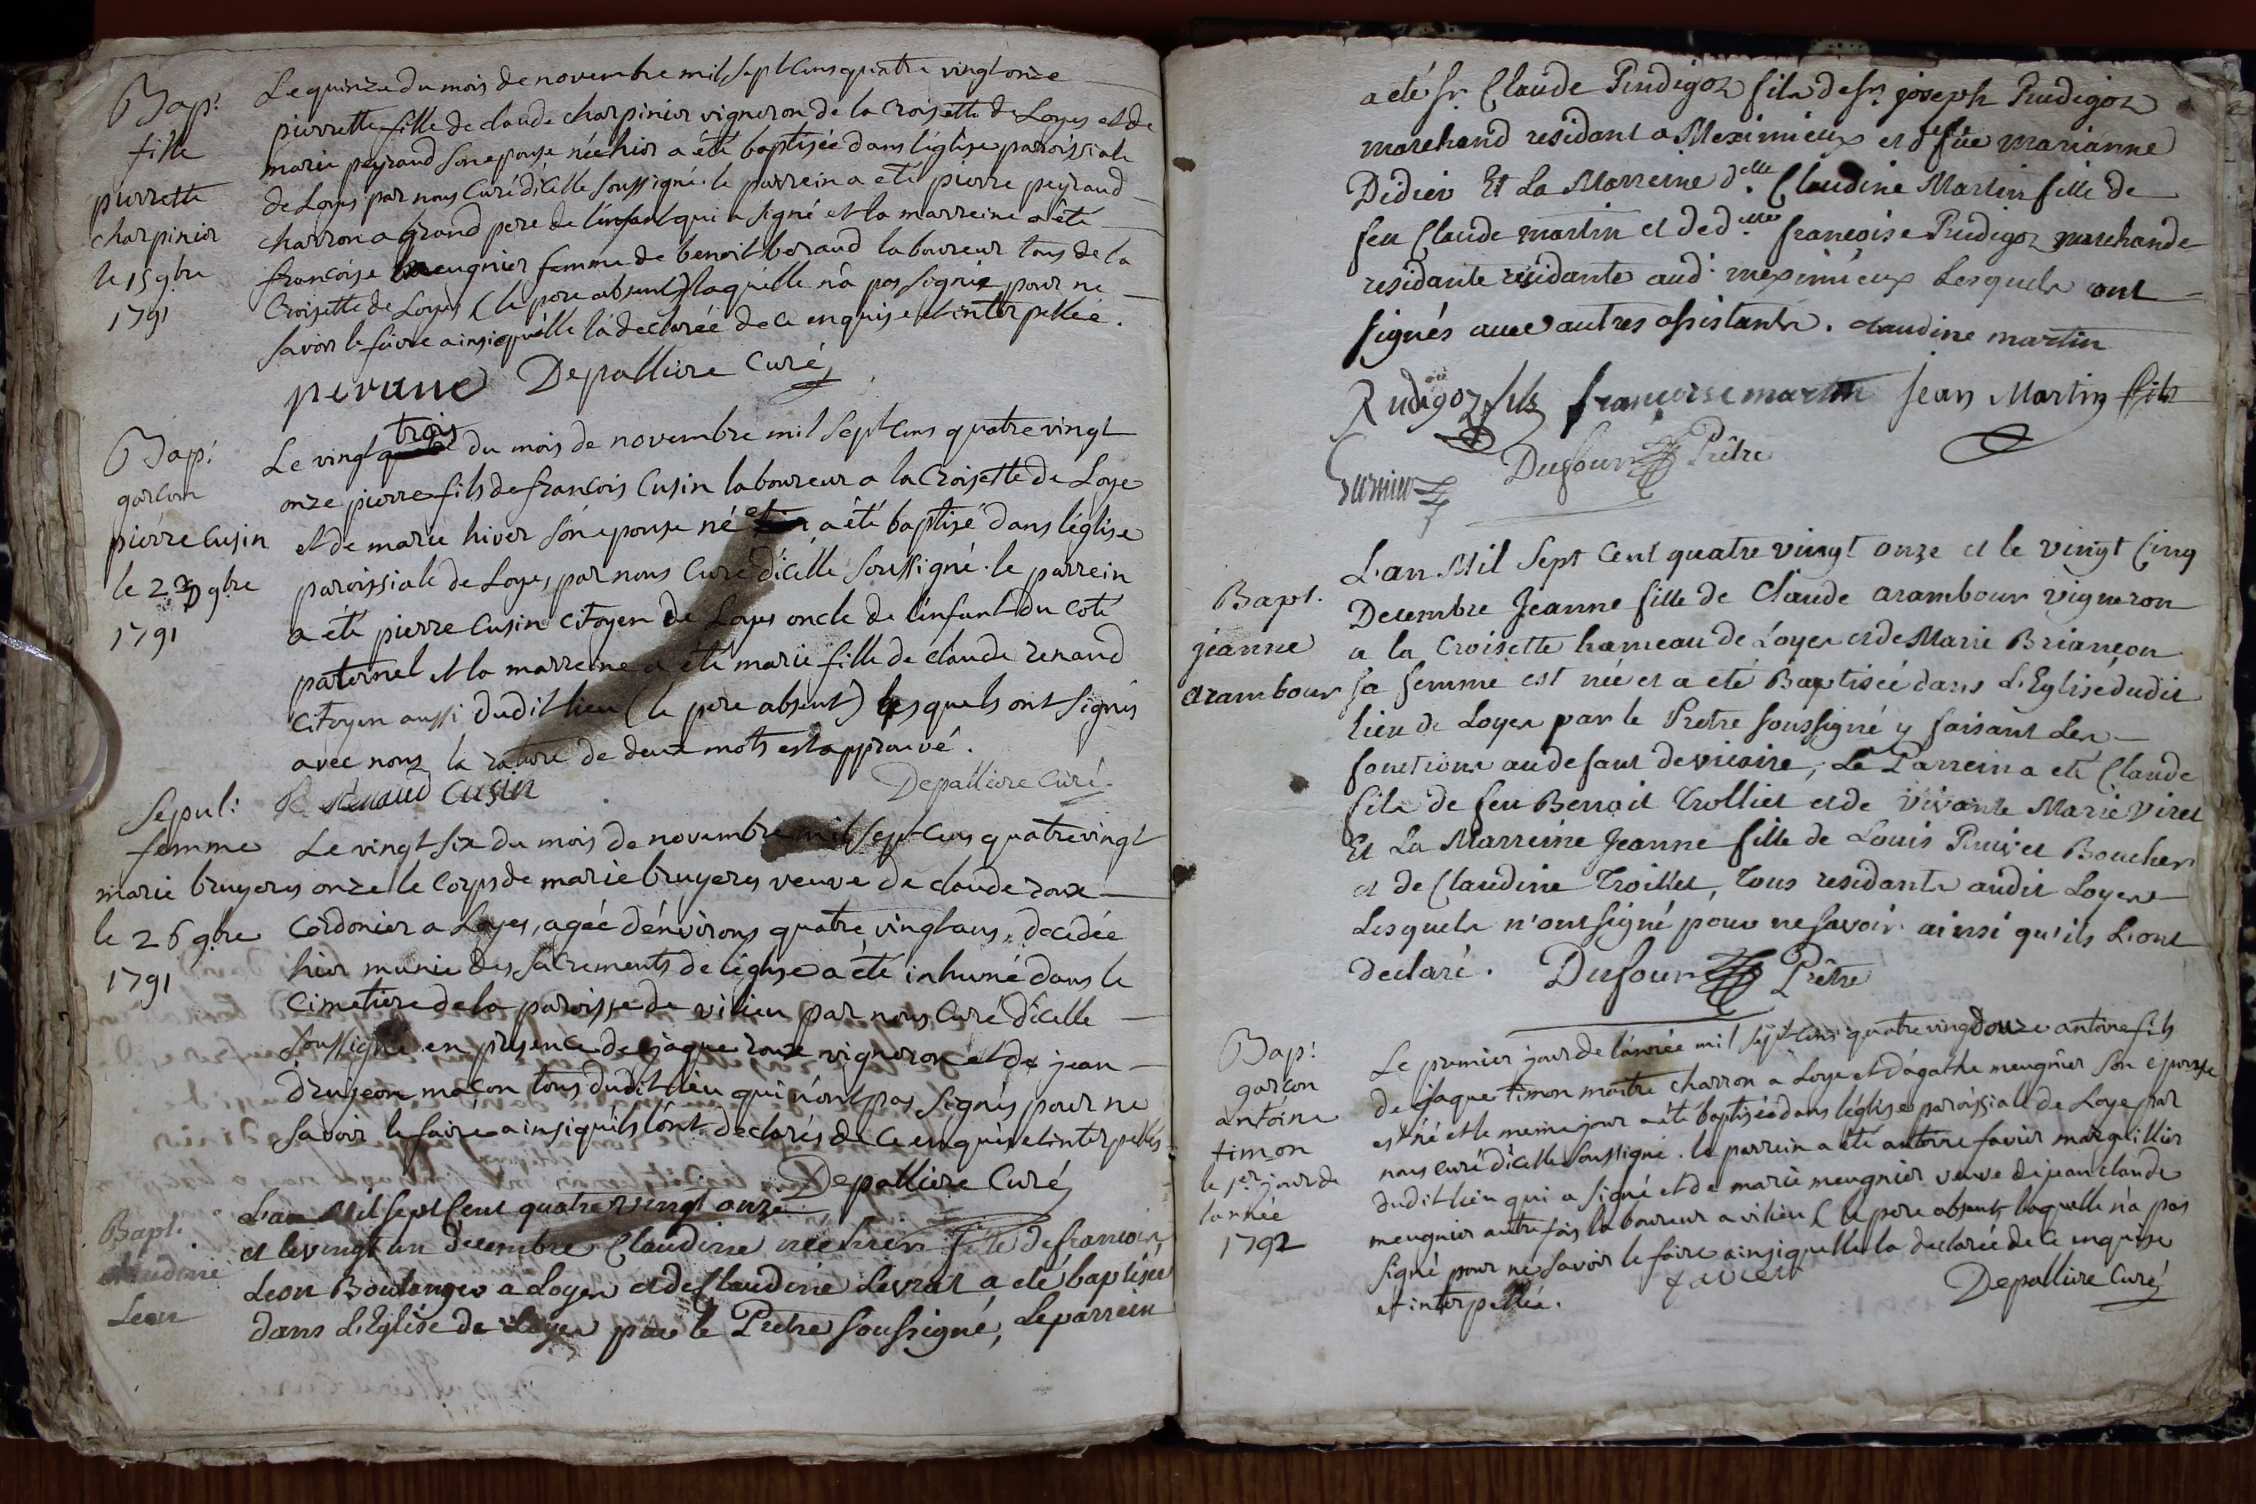 Bap.
fille
pierrette
charpinier
le 15 9bre
1791
Le quinze du mois de novembre mil sept cens quatre vingt onze
pierrette fille de claude charpinier vigneron de la Croisette de Loyes et de
marie peyraud son epouse née hier a été baptisée dans l'église paroissiale
de Loyes par nous Curé d'icelle soussigné. le parrein a eté pierre peyraud
charron a grand pere de l'enfant qui a signé et la marreine a été
françoise meugnier femme de benoit beraud laboureur tous de la
Croisette de Loyes (le pere absent) laquelle n'a pas signée pour ne
savoir le faire ainsi qu'elle l'a declarée de ce enquise et interpellée.
Depalliere Curé
Bap.
garçon
pierre Cusin
le 23 9bre
1791
Le vingt trois du mois de novembre mil sept cens quatre vingt
onze pierre fils de françois Cusin laboureur a la Croisette de Loye
et de marie hiver son epouse né a été baptisé dans l'église
paroissiale de Loyes, par nous Curé d'icelle soussigné. le parrein
a été pierre Cusin Citoyen de Loyes oncle de l'enfant du coté
paternel et la marreine a été marie fille de claude renaud
Citoyen aussi dudit lieu (le pere absent) lesquels ont signés
avec nous la rature de deux mots est approuvé.
renaud Cusin
Depalliere Curé
Sepul:
femme
marie bruyeres
le 26 9bre
1791
Le vingt six du mois de novembre mil sept cens quatre vingt
onze le Corps de marie bruyeres veuve de claude roux
Cordonier a Loyes, agée d'environs quatre vingt ans, decedée
hier munie des sacrements de l'église a été inhumé dans le
Cimetiere de la paroisse de vilieu par nous Curé d'icelle
soussigné en presence de jaque roux vigneron et de jean
drujeon maçon tous dudit lieu qui n'ont pas signés pour ne
savoir le faire ainsi qu'ils l'ont declarés de ce enquis et interpellés
Depalliere Curé
Bapt.
Claudine
Leon
L'an Mil Sept Cent quatre vingt onze
et le vingt un decembre Claudine née hier fille de françois
Leon Boulanger a Loyes et de Claudine Levrat a eté baptisée
dans L'Eglise de Loyes par le Prêtre soussigné, Le parrein
a eté Sr. Claude Rudigoz fils de Sr. joseph Rudigoz
marchand residant a Meximieux et de feüe marianne
Didier Et La Marreine delle. Claudine Martin fille de
feu Claude martin et de delle françoise Rudigoz marchande
residante residante aud. meximieux Lesquels ont
signés avec autres assistants. claudine martin
Rudigoz fils françoise martin jean Martin fils
Dufour Prêtre
Bapt.
jeanne
arambour
L'an Mil Sept Cent quatre vingt onze et le vingt Cinq
Decembre Jeanne fille de Claude arambour vigneron
a la Croisette hameau de Loyes et de Marie Briançon
sa femme est née et a eté Baptisée dans L'Eglise dudit
lieu de Loyes par le Prêtre soussigné y faisant Les
fonctions au defaut de vicaire; Le Parrein a eté Claude
fils de feu Benoit Trolliet et de vivante Marie Viret
Et La Marreine Jeanne fille de Louis Ruivet Boucher
et de Claudine Troillet, tous residants audit Loyes
Lesquels n'ont signé pour ne savoir ainsi qu'ils L'ont
declaré. Dufour Prêtre
Bap.
garçon
antoine
timon
le 1er jour de
l'année
1792
Le premier jour de l'année mil sept cens quatre vingt douze antoine fils
de jaque timon maitre charron a Loye et d'agathe meugnier son epouse
est né et le meme jour a été baptisée dans l'église paroissiale de Loye par
nous curé d'icelle soussigné. le parrein a été antoine favier marguillier
dudit lieu qui a signé et de marie meugnier veuve de jean claude
meugnier autrefois laboureur a vilieu (le pere absent) laquelle n'a pas
signé pour ne savoir le faire ainsi quelle la declarée de ce enquise
et interpellée. favier
Depalliere Curé